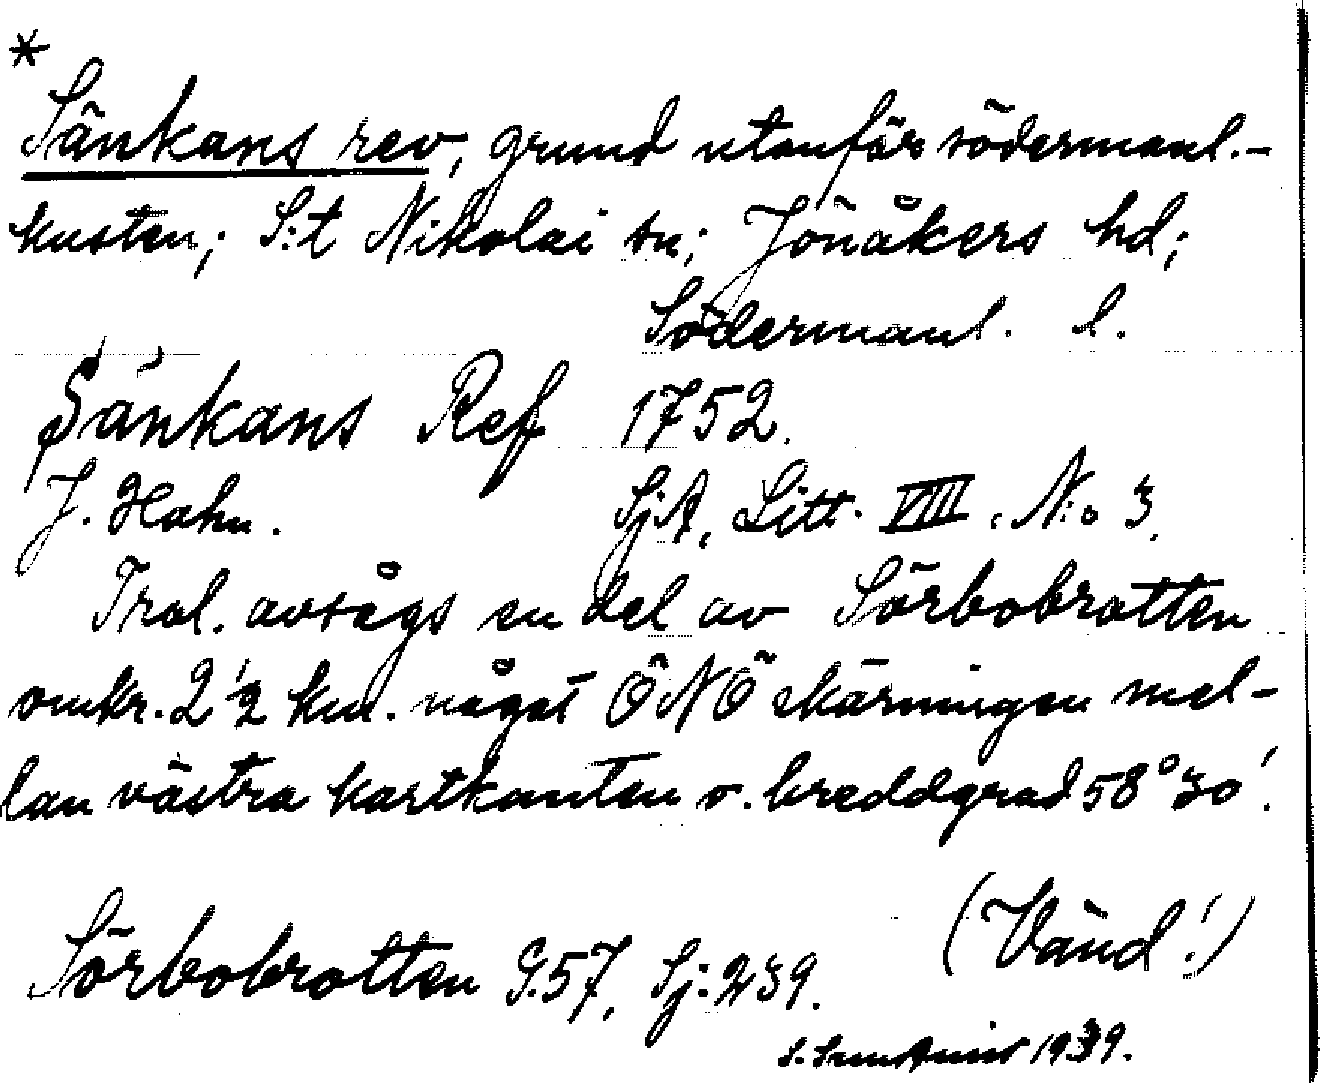 *
Sänkans rev, grund utanför södermanl.-
kusten; S:t Nikolai sn; Jönåkers hd;
Södermanl. l.
Sänkans Ref 1752.
J. Hahn. SjA, Litt. VIII. N:o 3.
Trol. avsågs en del av Sörbobrotten
omkr. 2 1/2 km. något ÖNÖ skärningen mel-
lan västra kartkanten o. breddgrad 58° 30'.
(Vänd!)
Sörbobrotten G.57, Sj:239.
1939.